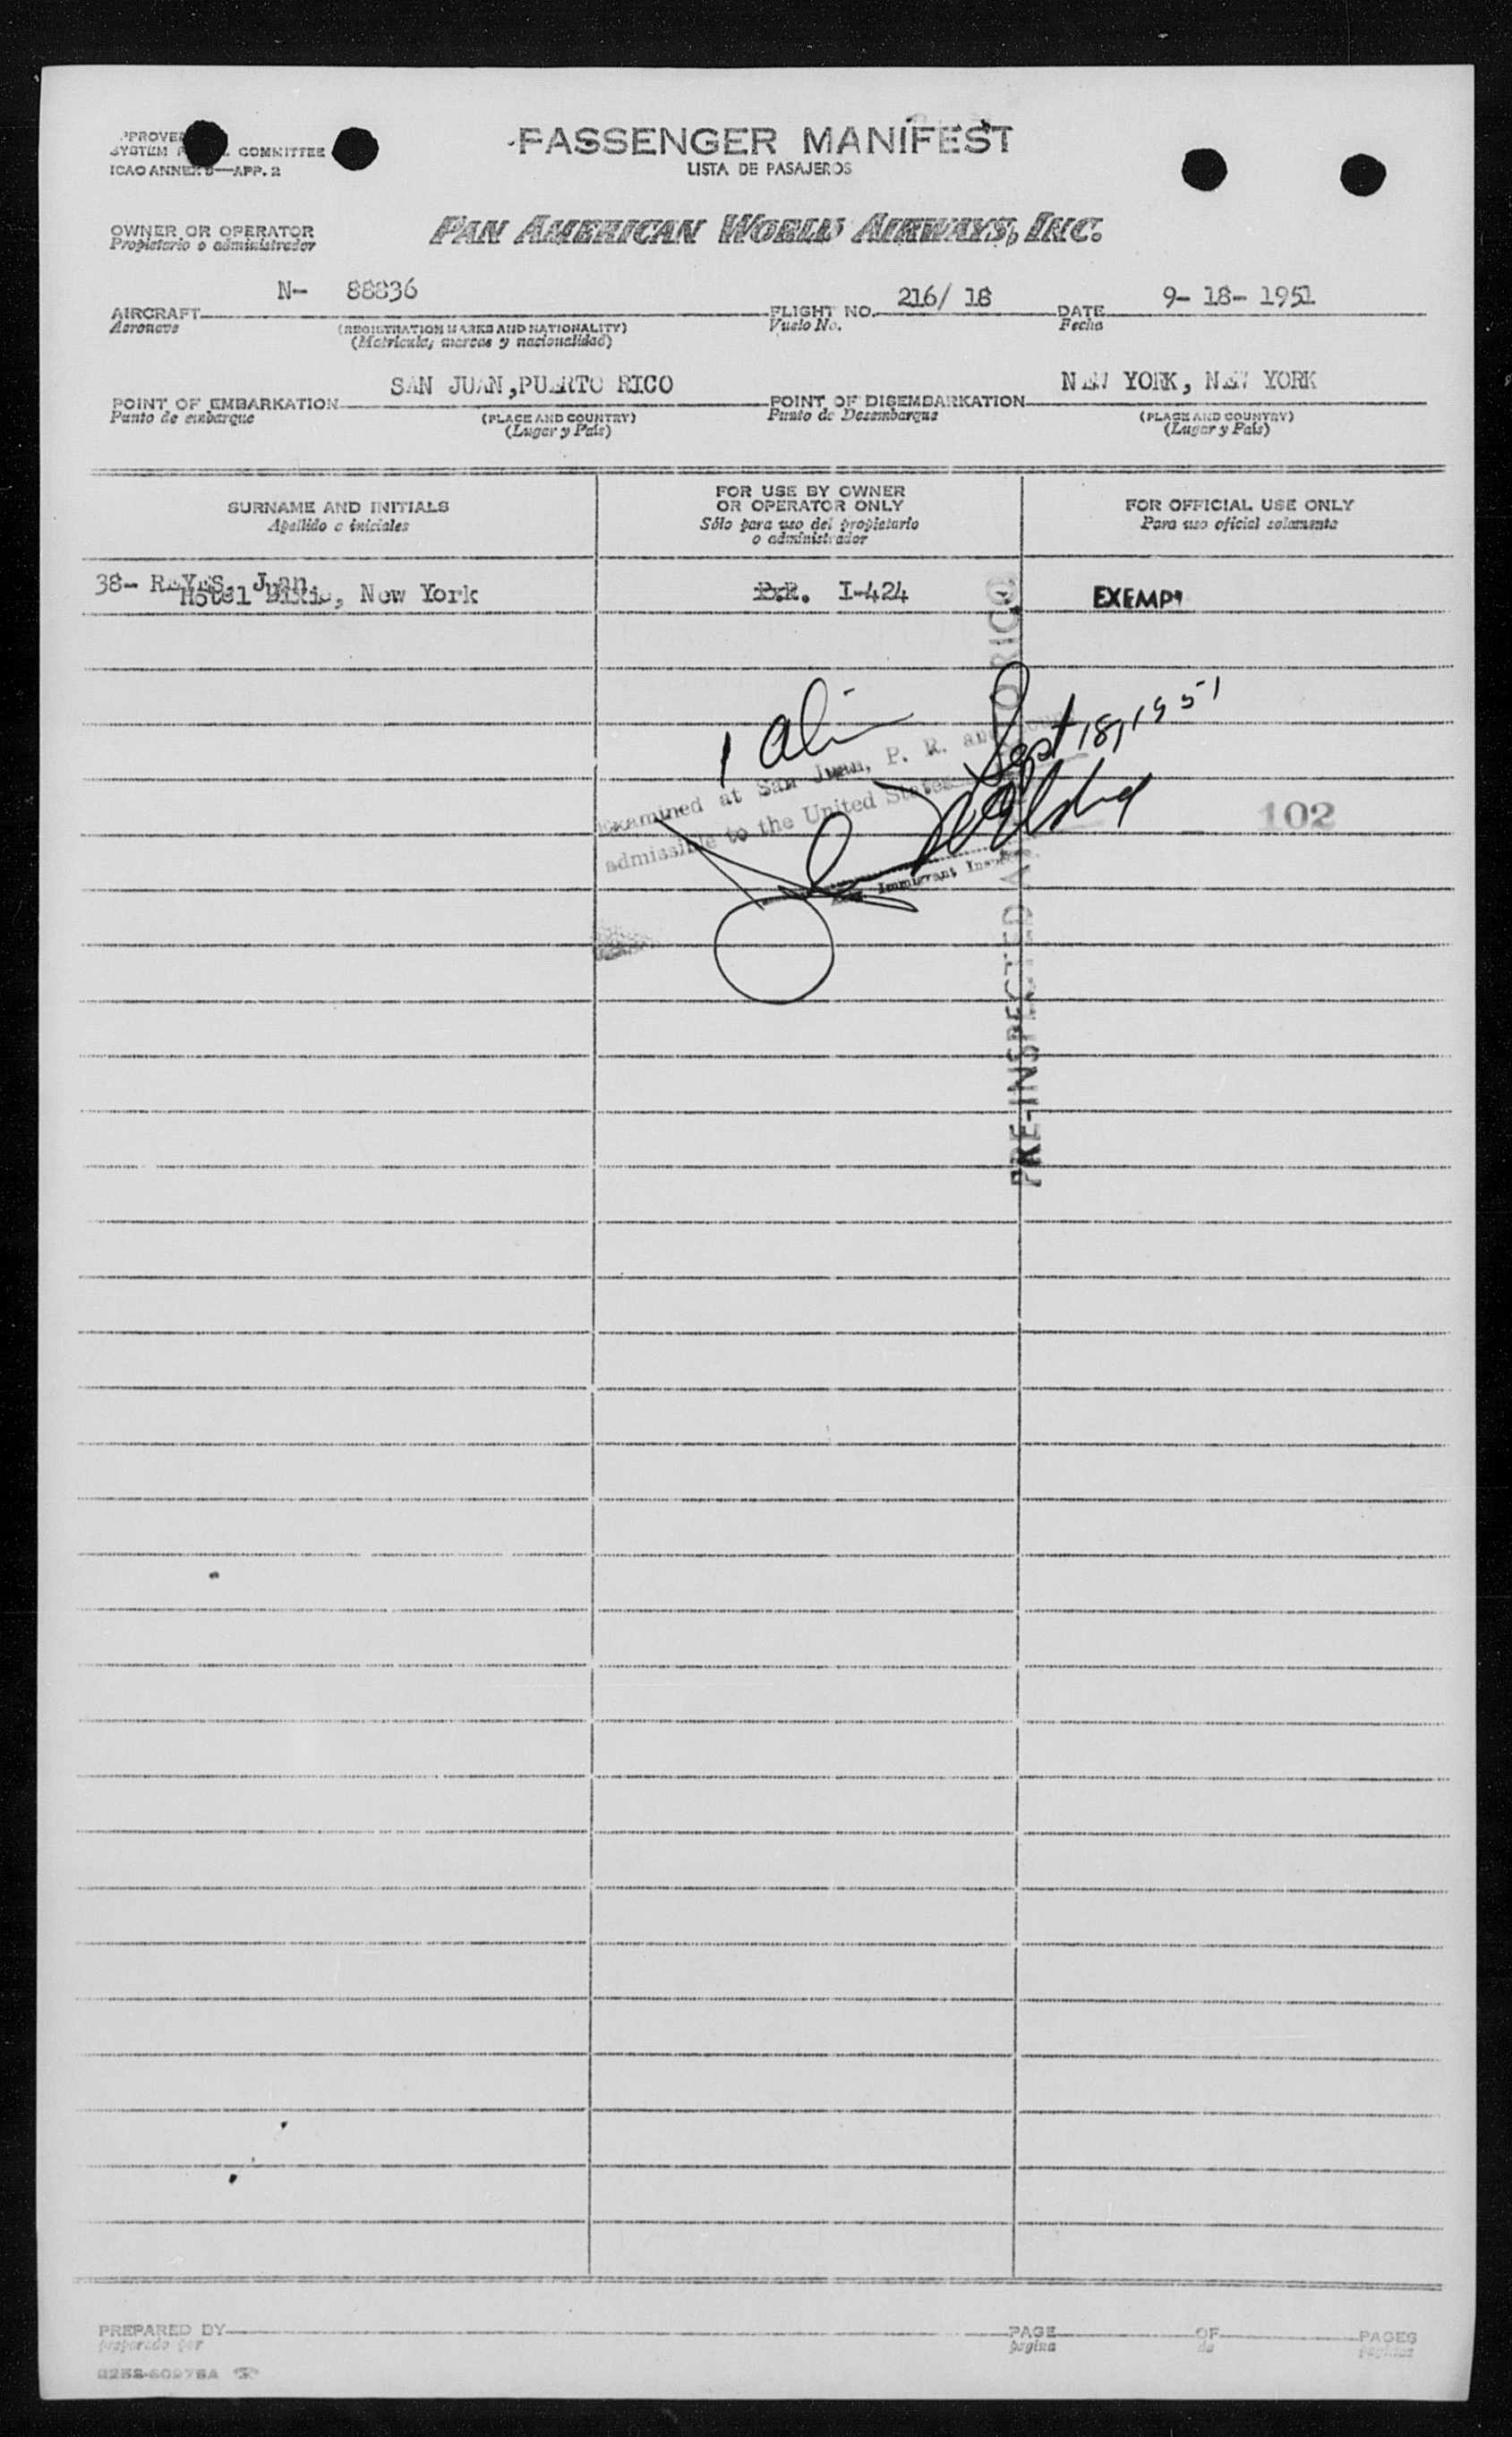 PASSENGER MANIFEST
LISTA DE PASAJEROS
SYSTEM COMMITTEE
ICAO ANNEX 9—APP. 2
OWNER OR OPERATOR
Propietario o administrador
PAN AMERICAN WORLD AIRWAYS, INC.
AIRCRAFT N- 88836 FLIGHT NO. 216/ 18 DATE 9- 18- 1951
Aeronave (REGISTRATION MARKS AND NATIONALITY) Vuelo No. Fecha
(Matricula, marcas y nacionalidad)
POINT OF EMBARKATION SAN JUAN,PUERTO RICO POINT OF DISEMBARKATION NEW YORK, NEW YORK
Punto de embarque (PLACE AND COUNTRY) Punto de Desembarque (PLACE AND COUNTRY)
(Lugar y País) (Lugar y País)
SURNAME AND INITIALS
Apellido e iniciales
FOR USE BY OWNER
OR OPERATOR ONLY
Sólo para uso del propietario
o administrador
FOR OFFICIAL USE ONLY
Para uso oficial solamente
38- REYES, Juan
Hotel Dixie, New York
I-424
EXEMPT
1 alien
Sept 18, 1951
Examined at San Juan, P. R. and
admissible to the United States
Immigrant Inspector
102
PRE-INSPECTED RICO
PREPARED BY PAGE OF PAGES
preparado por pagina de paginas